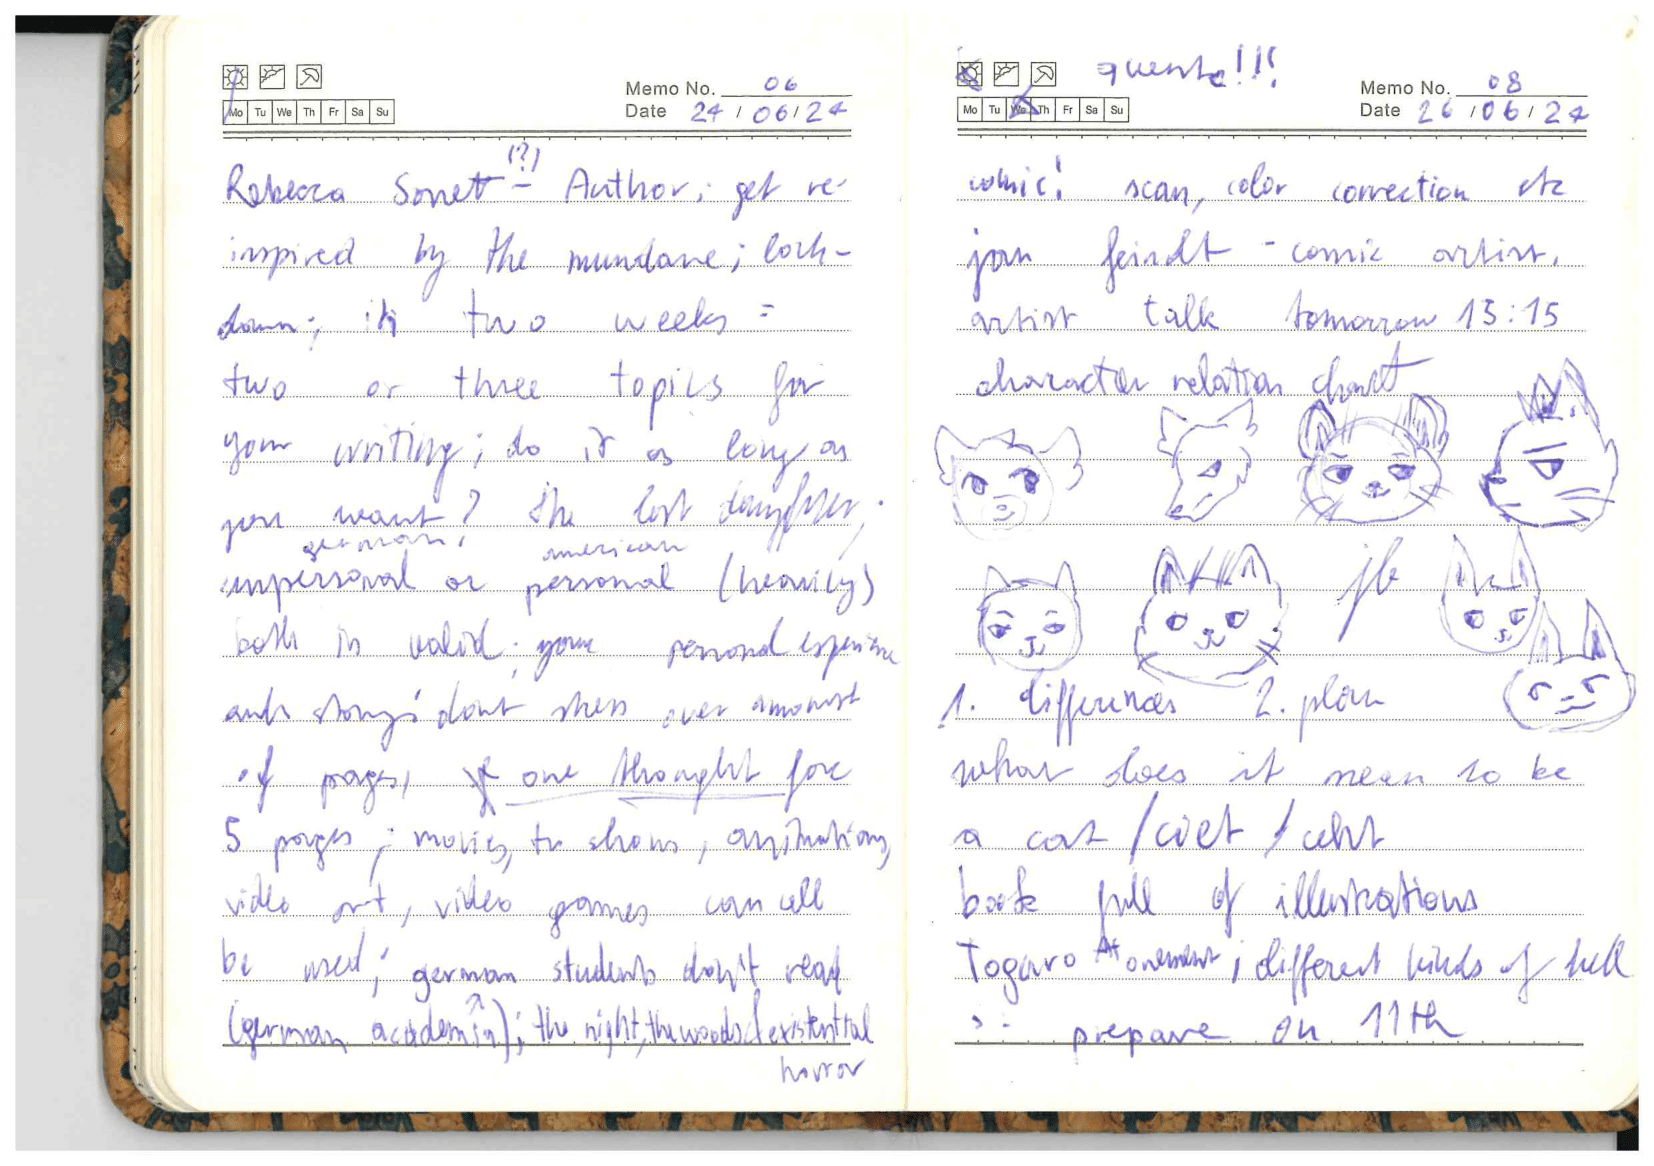 Mo Tu We Th Fr Sa Su
Memo No. 06
Date 24/06/24
(?)
Rebecca Sonett - Author; get re-
inspired by the mundane; lock-
down; two weeks =
two or three topics for
your writing; do it as long as
you want? the lost daughter;
german? american
impersonal or personal (heavily)
both is valid; your personal experience
story; dont stress over amount
of pages, one thought for
5 pages; movies, tv shows, animations,
video art, video games can all
be used; german students don't read
(german academia); the night, the woods & existential
horror
quente!!!
Mo Tu We Th Fr Sa Su
Memo No. 08
Date 26/06/24
comic! scan, color correction etc
jan feindt - comic artist.
artist talk tomorrow 13:15
character relation chart
1. differences 2. plan
what does it mean to be
a cat /
book full of illustrations
Togaro Atonement; different kinds of hell
prepare on 11th